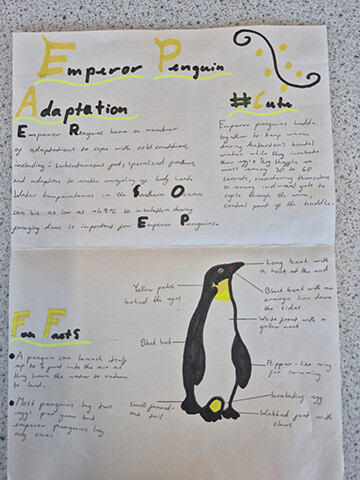 Emperor Penguin
Adaptation
Emperor Penguins have a number
of adaptations to cope with cold conditions,
including: subcutaneous fat, specialised feathers,
and adaption to enable recycling of body heat.
Water temperatures in the Southern Ocean
can be as low as -1.9°C so insulation during
foraging dives is important for Emperor Penguins.
#Cute
Emperor penguins huddle
together to keep warm
during Antarctica's hardest
winter while they incubate
an egg. They shuffle in
most every 30 to 60
seconds,
so every individual gets to
cycle through the warm,
central part of the huddle.
Fun Facts
A penguin can launch itself
up to 9 feet into the air as
they leave the water to return
to land.
Most penguins lay two
eggs per year but
emperor penguins lay
only one.
Yellow patch
behind the eyes
Black back
Small
out tail
Long beak with
a hook at the end
Black beak with an
orange line down the
sides
White front with a
yellow neck
Flipper-like wing
for swimming
Incubating egg
Webbed feet with
claws